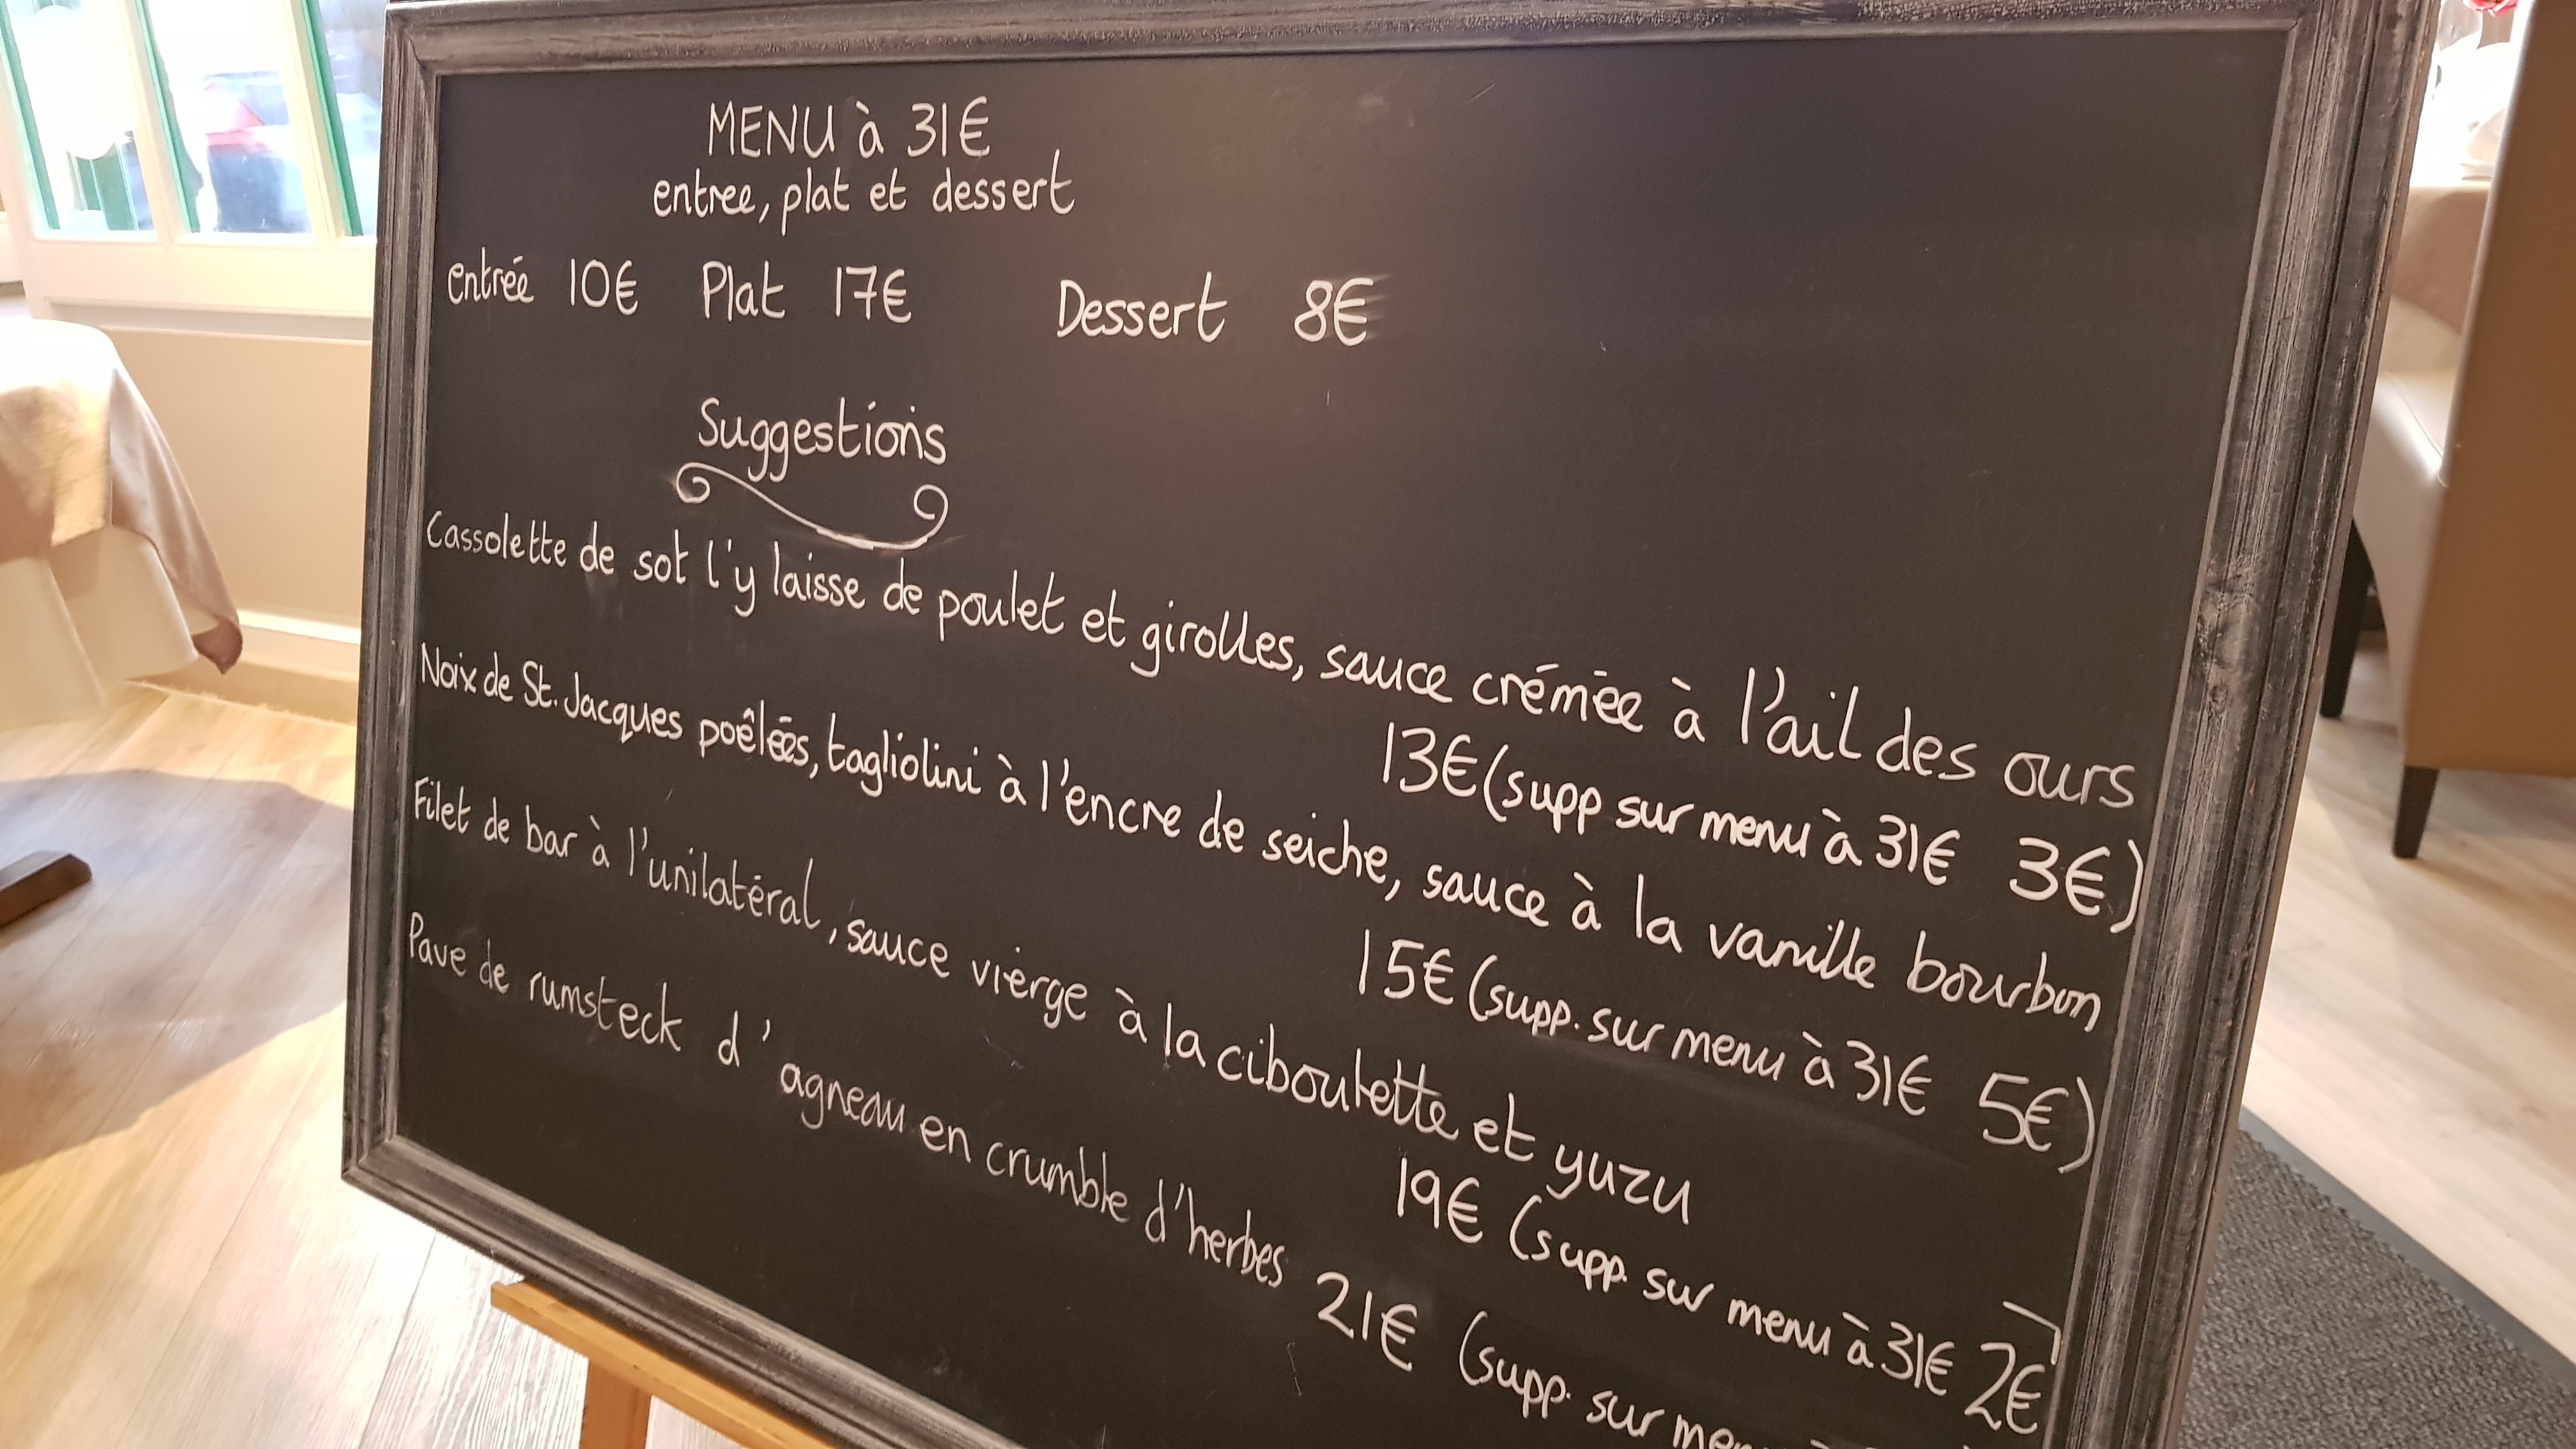 MENU à 31€
entree, plat et dessert
entrée 10€ Plat 17€ Dessert 8€
Suggestions
Cassolette de sot l'y laisse de poulet et girolles, sauce crémée à l'ail des ours
13€ (supp sur menu à 31€ 3€)
Noix de St. Jacques poêlées, tagliolini à l'encre de seiche, sauce à la vanille bourbon
15€ (supp. sur menu à 31€ 5€)
Filet de bar à l'unilatéral, sauce vierge à la ciboulette et yuzu
19€ (supp. sur menu à 31€ 2€
Pave de rumsteck d'agneau en crumble d'herbes 21€ (supp. sur